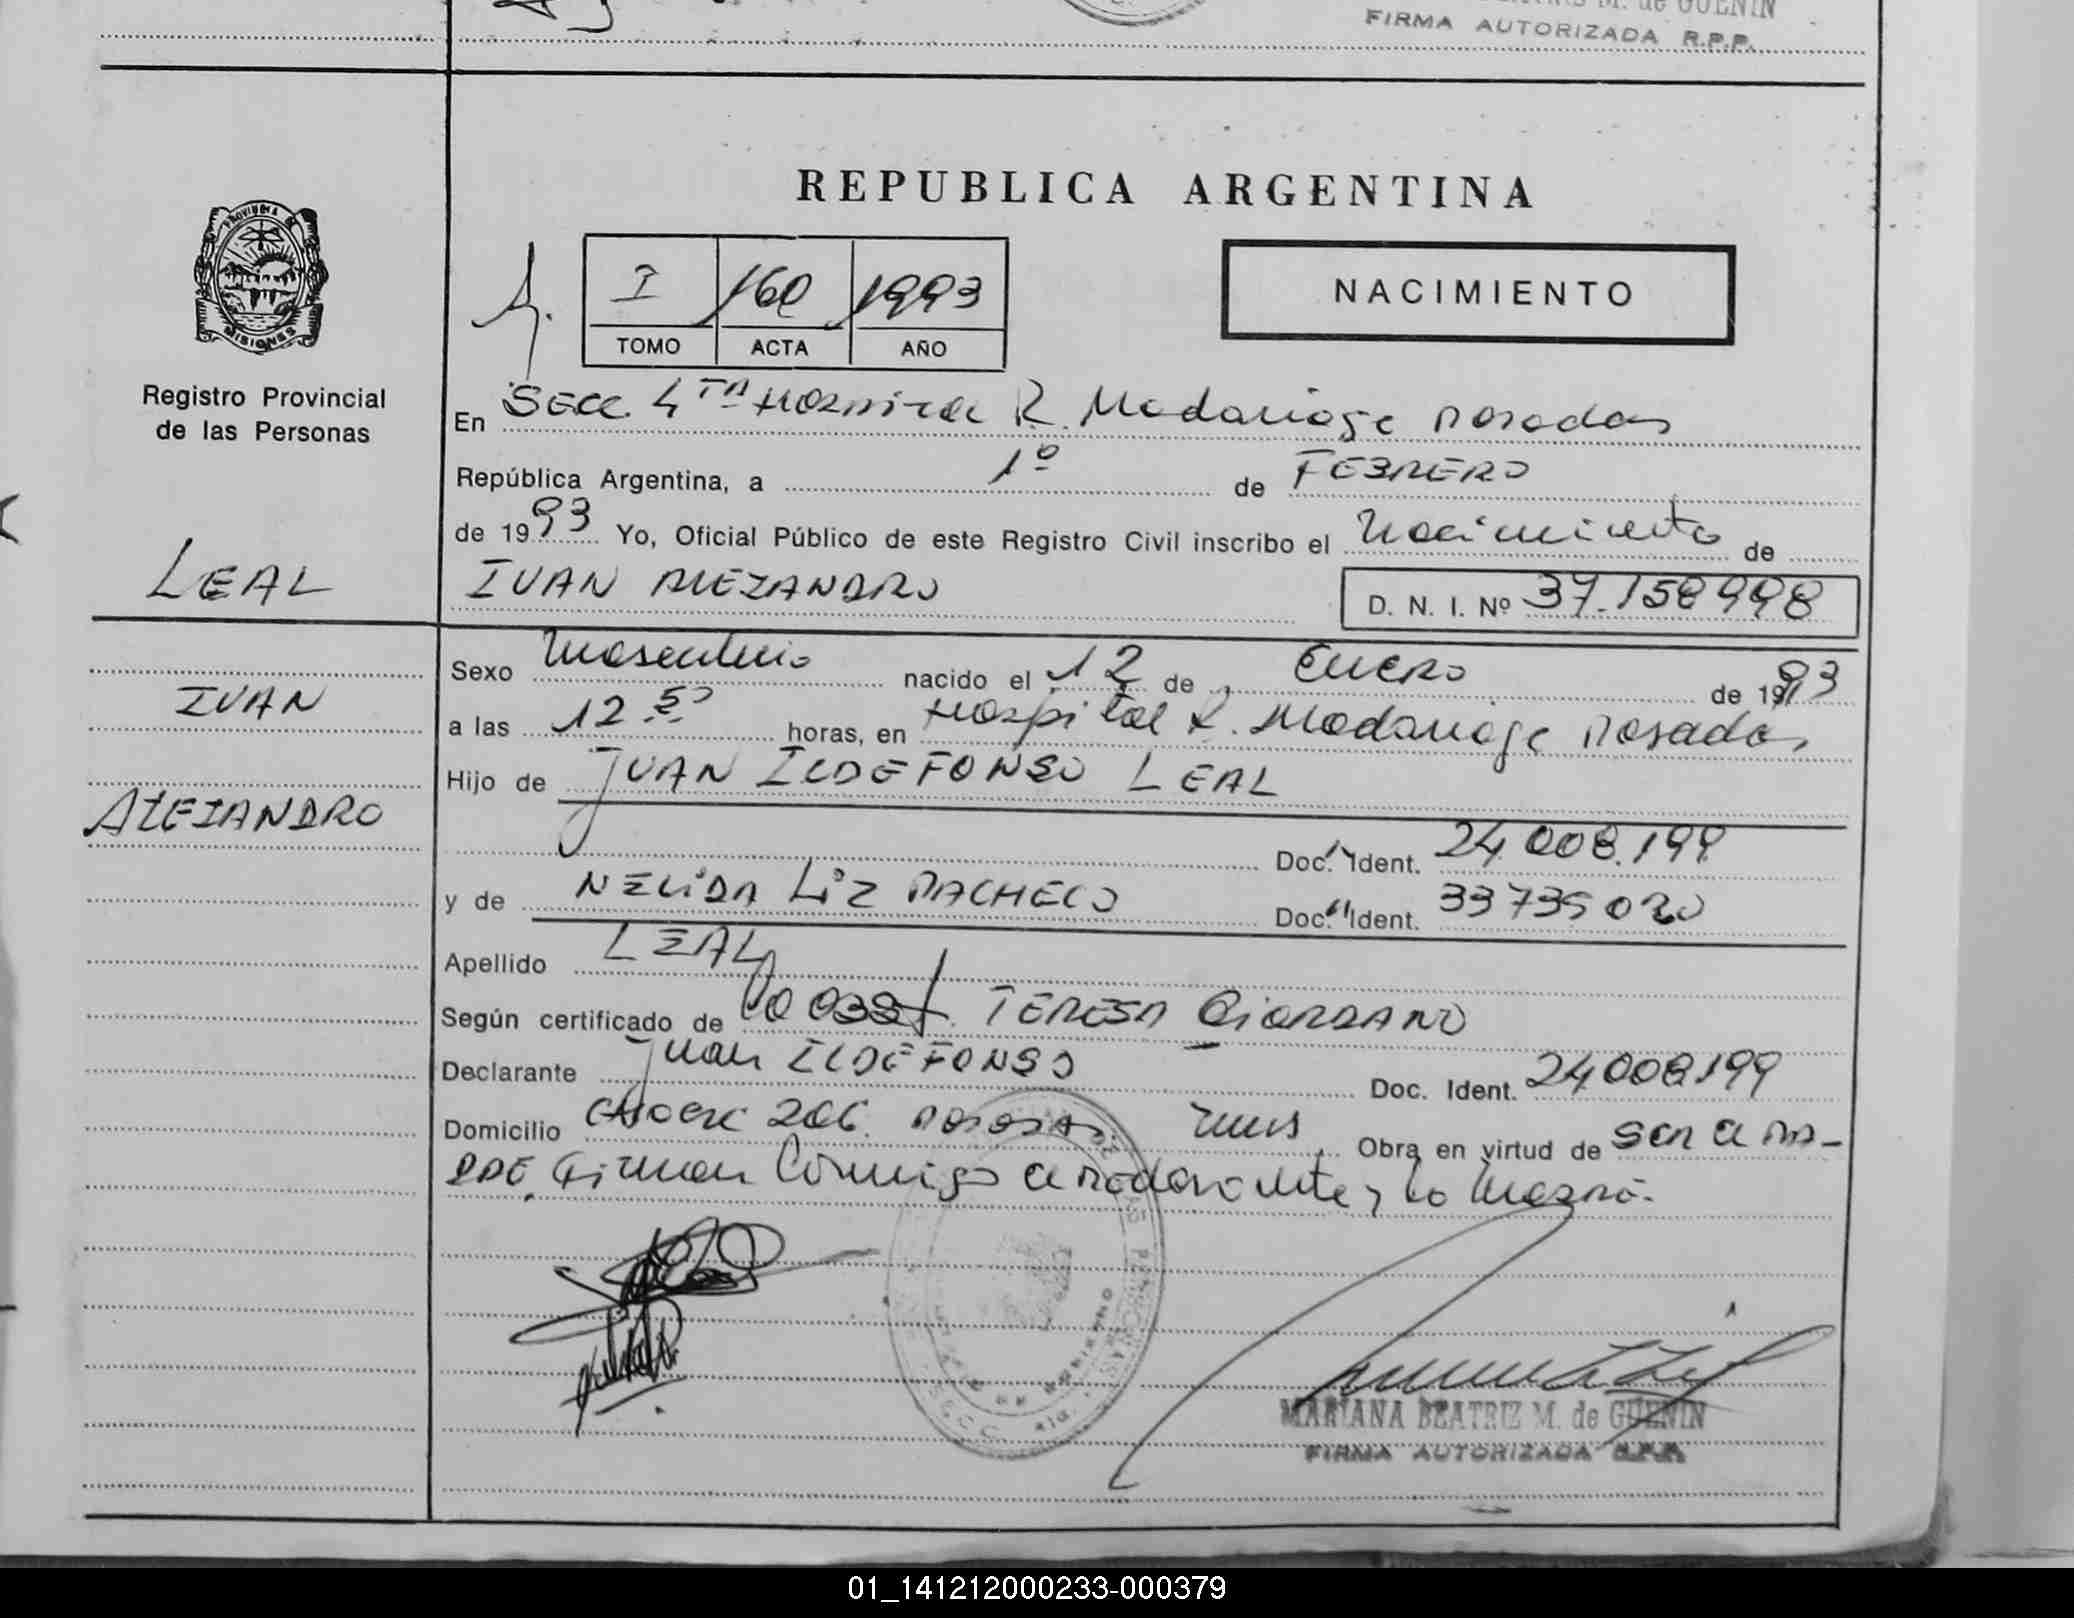 M. de GUENIN
FIRMA AUTORIZADA R.P.P.
REPUBLICA ARGENTINA
PROVINCIA DE
MISIONES
Registro Provincial
de las Personas
I 160 1993
TOMO ACTA AÑO
NACIMIENTO
En SECC. 4TA HOSPITAL R. Madariaga Posadas
República Argentina, a 1º de FEBRERO
de 1993 Yo, Oficial Público de este Registro Civil inscribo el Nacimiento de
LEAL
IVAN ALEJANDRO
D. N. I. Nº 37.158998
Sexo Masculino nacido el 12 de Enero de 1993
IVAN
a las 12 50 horas, en Hospital R. Madariaga Posadas
Hijo de JUAN ILDEFONSO LEAL
ALEJANDRO
Doc. Ident. 24.008.199
y de NELIDA Liz PACHECO Doc. Ident. 33735020
Apellido LEAL
Según certificado de TERESA GIORDANO
Declarante Juan ILDEFONSO Doc. Ident. 24008199
Domicilio 206 POSADAS Mnes Obra en virtud de SER el PA-
DRE. Firman Conmigo el declarante y la
MARIANA BEATRIZ M. de GUENIN
FIRMA AUTORIZADA R.P.P.
01_141212000233-000379